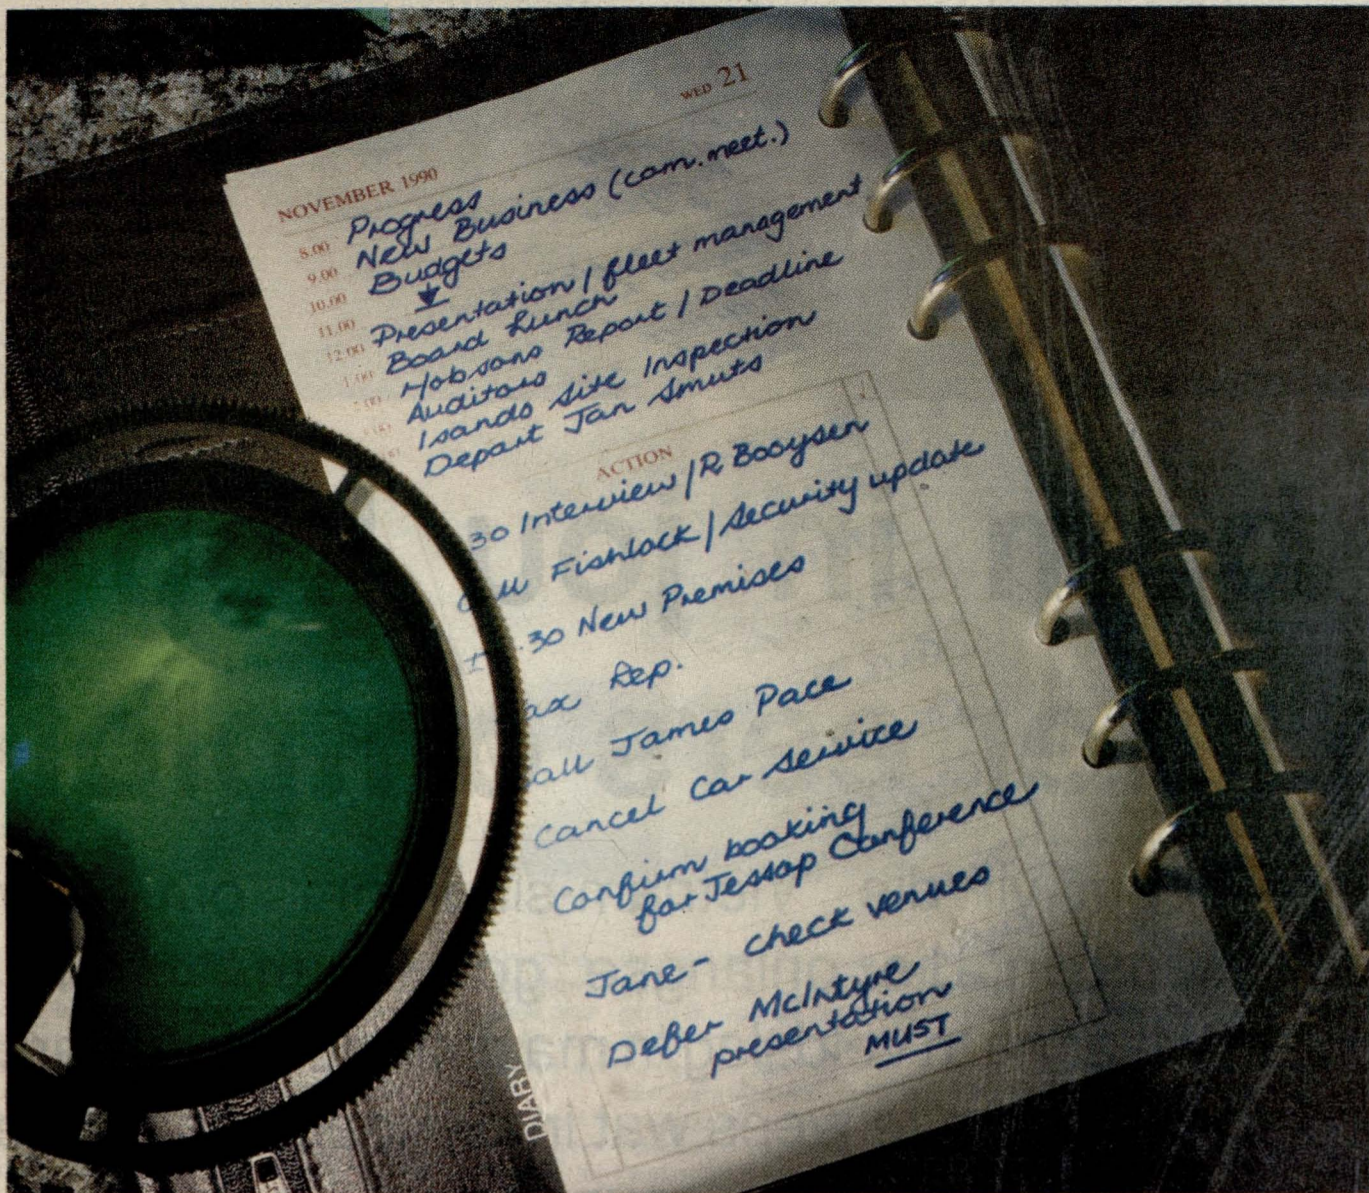 WED 21
NOVEMBER 1990
8.00 Progress
9.00 New Business (com. meet.)
10.00 Budgets
11.00
12.00 Presentation / fleet management
1.00 Board Lunch
Hobsons Report / Deadline
Auditors
Isando Site Inspection
Depart Jan Smuts
ACTION
30 Interview / R. Booysen
Fishlock / Security update
.30 New Premises
Rep.
James Pace
Cancel Car Service
Confirm booking
for Jessop Conference
Jane - check venues
Defer McIntyre
presentation
MUST
DIARY